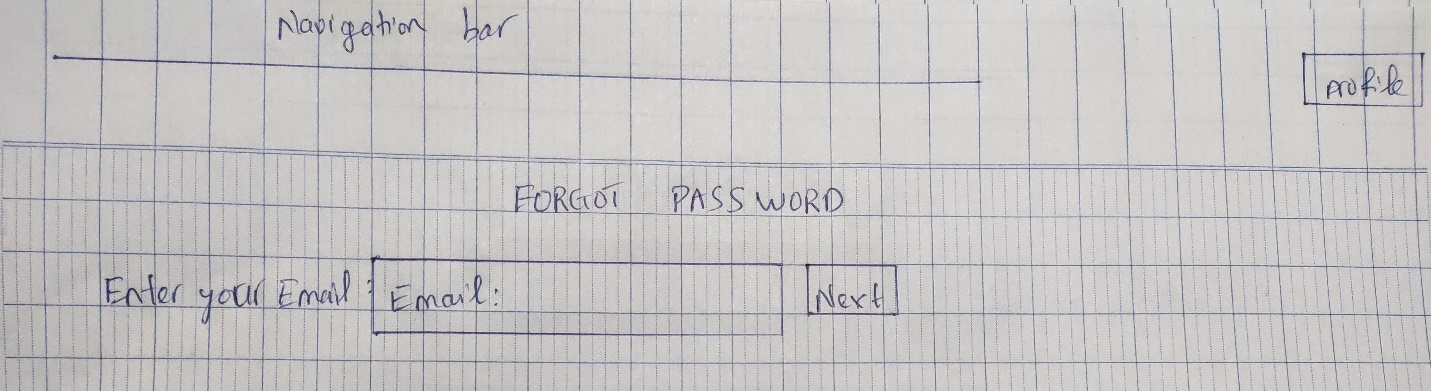 Navigation bar
Profile
FORGOT PASSWORD
Enter your Email : Email: Next